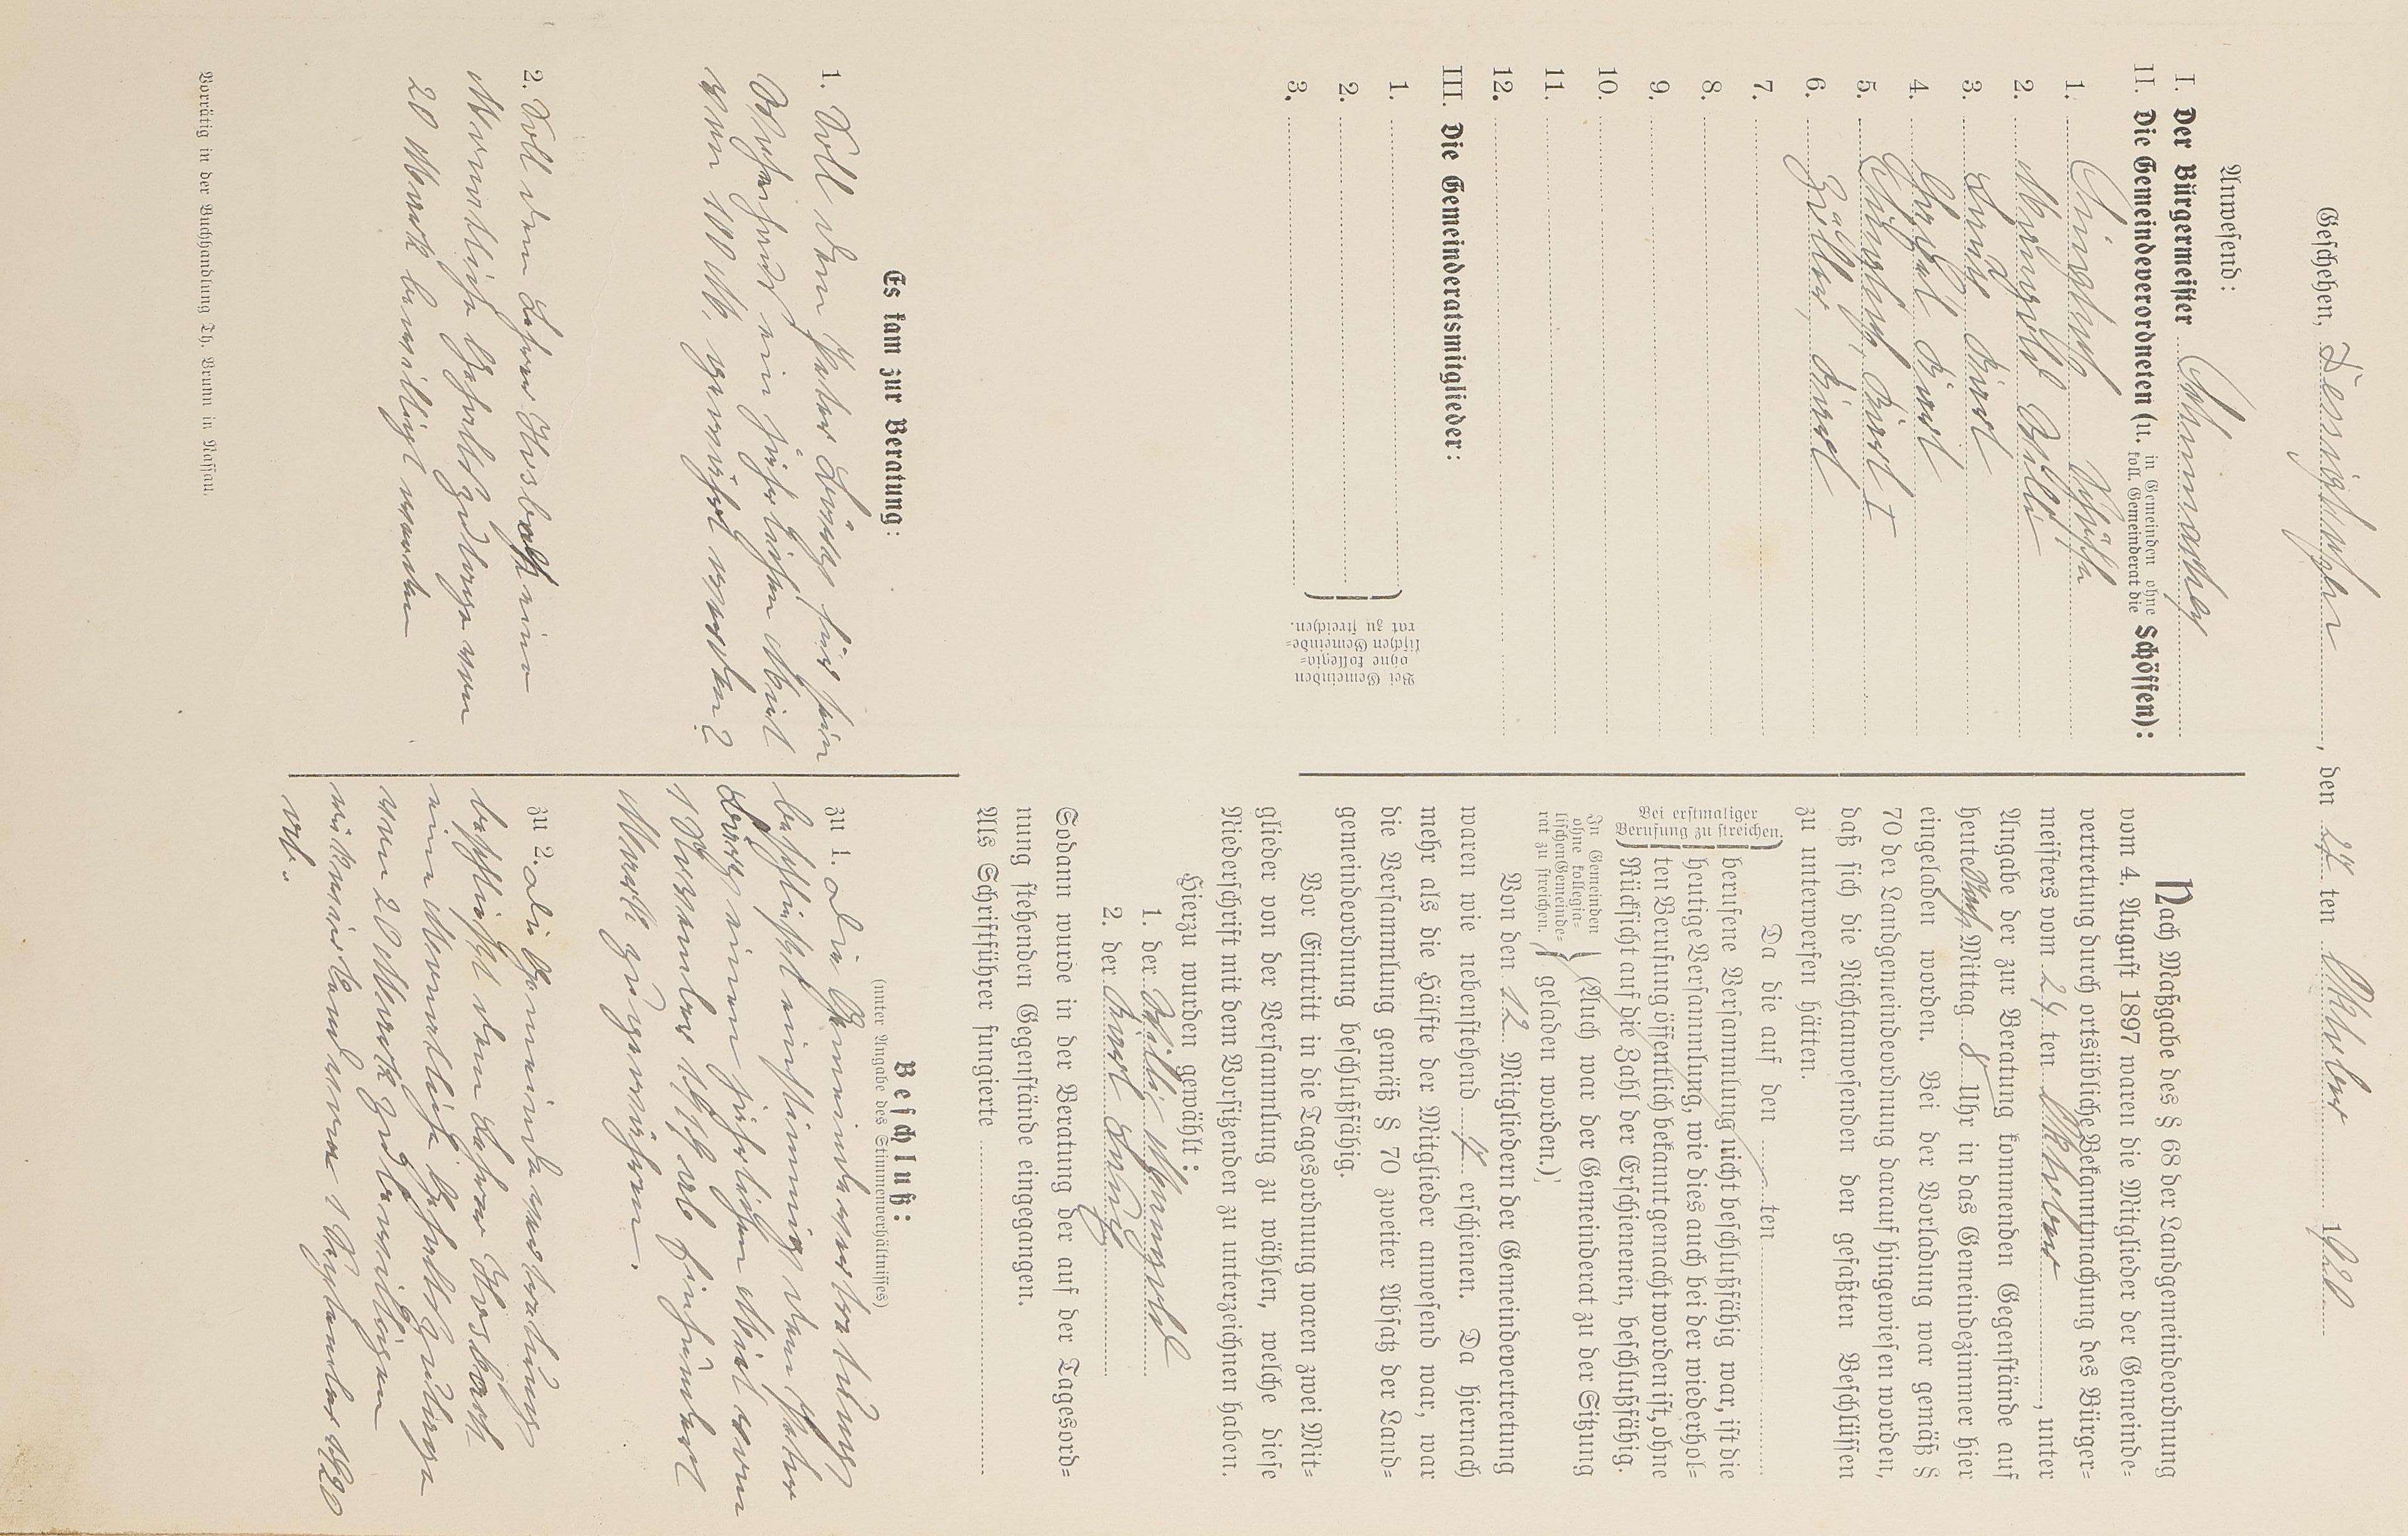 Geschehen, Dessighofen, den 27 ten Oktober 1920
Anwesend:
I. Der Bürgermeister Schumacher
II. Die Gemeindeverordneten (u. in Gemeinden ohne koll. Gemeinderat die Schöffen):
1. Schöffe
2.
3. Karl
4. Karl
5. Karl I
6. Karl
7.
8.
9.
10.
11.
12.
III. Die Gemeinderatsmitglieder:
1.
2.
3.
Bei Gemeinden
ohne kollegia-
lischen Gemeinde-
rat zu streichen.
Nach Maßgabe des § 68 der Landgemeindeordnung
vom 4. August 1897 waren die Mitglieder der Gemeinde-
vertretung durch ortsübliche Bekanntmachung des Bürger-
meisters vom 24 ten Oktober, unter
Angabe der zur Beratung kommenden Gegenstände auf
heute Nach Mittag 8 Uhr in das Gemeindezimmer hier
eingeladen worden. Bei der Vorladung war gemäß §
70 der Landgemeindeordnung darauf hingewiesen worden,
daß sich die Nichtanwesenden den gefaßten Beschlüssen
zu unterwerfen hätten.
Da die auf den ten
Bei erstmaliger
Berufung zu streichen.
berufene Versammlung nicht beschlußfähig war, ist die
heutige Versammlung, wie dies auch bei der wiederhol-
ten Berufung öffentlich bekannt gemacht worden ist, ohne
Rücksicht auf die Zahl der Erschienenen, beschlußfähig.
In Gemeinden
ohne kollegia-
lischen Gemeinde-
rat zu streichen.
(Auch war der Gemeinderat zu der Sitzung
geladen worden.)
Von den 12 Mitgliedern der Gemeindevertretung
waren wie nebenstehend erschienen. Da hiernach
mehr als die Hälfte der Mitglieder anwesend war, war
die Versammlung gemäß § 70 zweiter Absatz der Land-
gemeindeordnung beschlußfähig.
Vor Eintritt in die Tagesordnung waren zwei Mit-
glieder von der Versammlung zu wählen, welche diese
Niederschrift mit dem Vorsitzenden zu unterzeichnen haben.
Hierzu wurden gewählt:
1. der
2. der Karl
Sodann wurde in der Beratung der auf der Tagesord-
nung stehenden Gegenstände eingegangen.
Als Schriftführer fungierte
Es kam zur Beratung:
1. Soll dem Peter für sein
ein jährlichen Miet
von 100 M. gewährt werden?
2. Soll dem Lehrer Hosbach eine
Monatliche Gehaltszulage von
20 Mark bewilligt werden
Beschluß:
(unter Angabe des Stimmenverhältnisses)
zu 1. Die Gemeindevertretung
beschließt einstimmig dem Peter
einen jährlichen Miet von
1 November 1919 ab Einhundert
Mark zu gewähren.
zu 2. Die Gemeindevertretung
beschließt dem Lehrer Hosbach
eine Monatliche Gehaltszulage
von 20 Mark zu bewilligen
wirkend vom 1 September 1920
ab.
Vorrätig in der Buchhandlung Th. Brunn in Nassau.